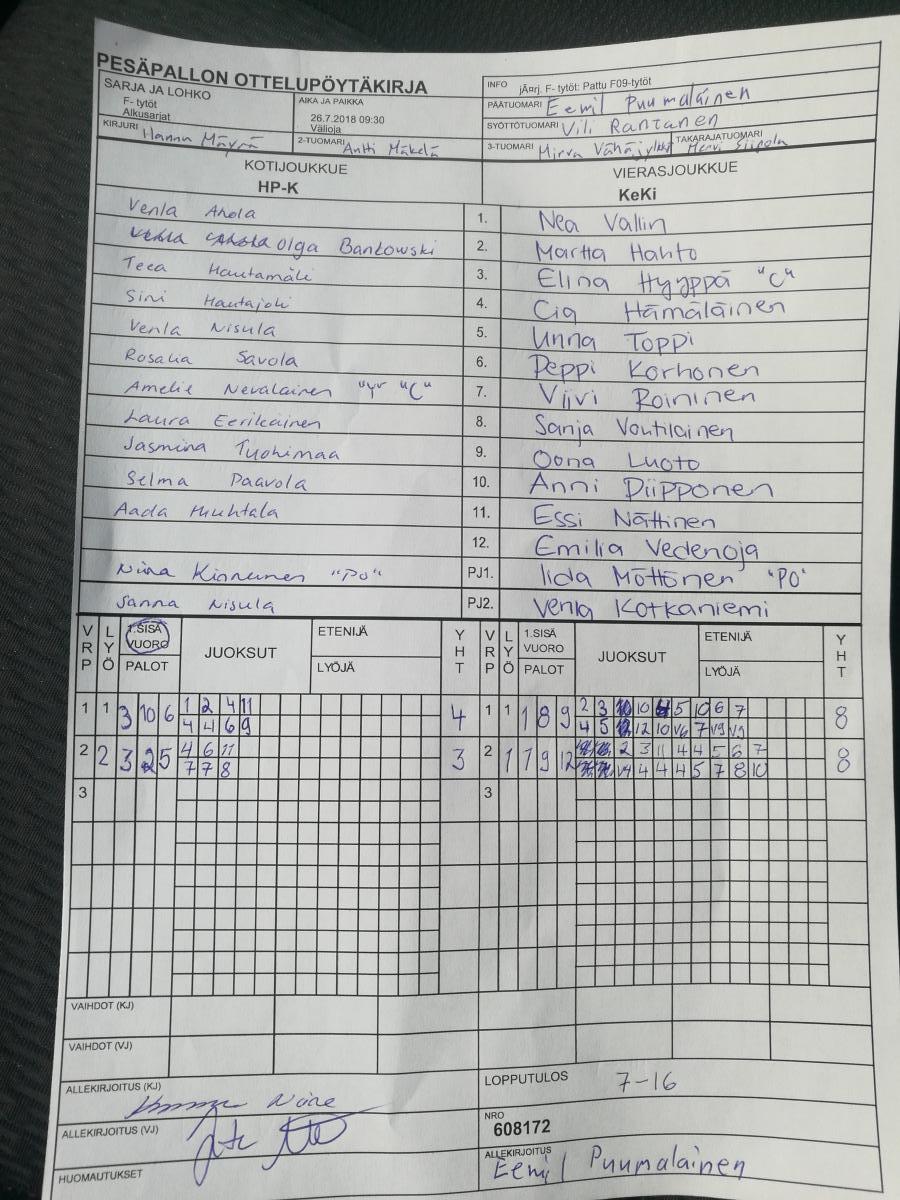 PESÄPALLON OTTELUPÖYTÄKIRJA
SARJA JA LOHKO
F- tytöt
Alkusarjat
AIKA JA PAIKKA
26.7.2018 09:30
Välioja
INFO jÃ¤rj. F- tytöt: Pattu F09-tytöt
PÄÄTUOMARI Eemil Puumalainen
SYÖTTÖTUOMARI Vili Rantanen
KIRJURI Hannu Mäyrä
2-TUOMARI Antti Mäkelä
3-TUOMARI Mirva TAKARAJATUOMARI Mervi
KOTIJOUKKUE
HP-K
VIERASJOUKKUE
KeKi
Venla Ahola 1. Nea Vallin
Olga Bankowski 2. Martta Hahto
Teea Hautamäki 3. Elina Hyyppä "C"
Sini Hautajoki 4. Cia Hämäläinen
Venla Nisula 5. Unna Toppi
Rosalia Savola 6. Peppi Korhonen
Amelie Nevalainen "Y" "C" 7. Viivi Roininen
Laura Eerikäinen 8. Sanja Voutilainen
Jasmina Tuohimaa 9. Oona Luoto
Selma Paavola 10. Anni Piipponen
Aada Huhtala 11. Essi Nättinen
12. Emilia Vedenoja
Niina Kinnunen "PO" PJ1. Iida Möttönen "PO"
Sanna Nisula PJ2. Venla Kotkaniemi
VRP LYÖ 1.SISÄ VUORO PALOT JUOKSUT ETENIJÄ LYÖJÄ YHT VRP LYÖ 1.SISÄ VUORO PALOT JUOKSUT ETENIJÄ LYÖJÄ YHT
1 1 3 10 6 1 2 4 11 4 1 1 1 8 9 2 3 10 5 10 6 7 8
4 4 6 9 4 5 12 10 V6 7 V9 V9
2 2 3 5 4 6 11 3 2 1 1 9 12 2 3 11 4 4 5 6 7 8
7 7 8 V4 4 4 4 5 7 8 10
3 3
VAIHDOT (KJ)
VAIHDOT (VJ)
ALLEKIRJOITUS (KJ)
LOPPUTULOS 7-16
ALLEKIRJOITUS (VJ)
NRO
608172
HUOMAUTUKSET
ALLEKIRJOITUS
Eemil Puumalainen